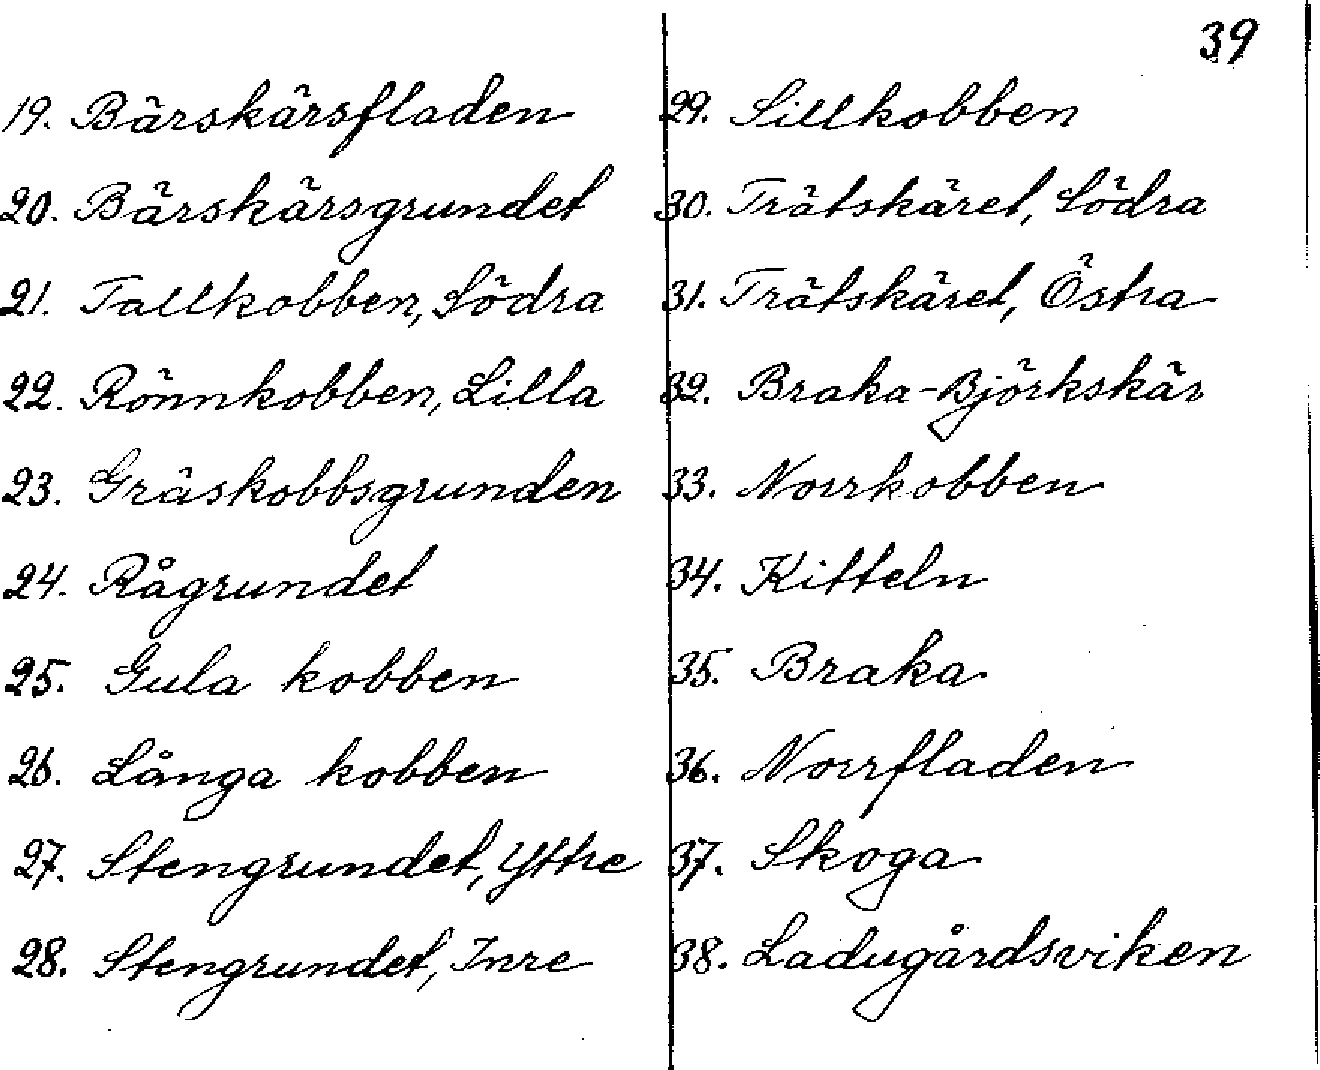 39
19. Bärskärsfladen
20. Bärskärsgrundet
21. Tallkobben, Södra
22. Rönnkobben, Lilla
23. Gräskobbsgrunden
24. Rågrundet
25. Gula kobben
26. Långa kobben
27. Stengrundet, Yttre
28. Stengrundet, Inre
29. Sillkobben
30. Trätskäret, Södra
31. Trätskäret, Östra
32. Braka-Björkskär
33. Norrkobben
34. Kitteln
35. Braka
36. Norrfladen
37. Skoga
38. Ladugårdsviken